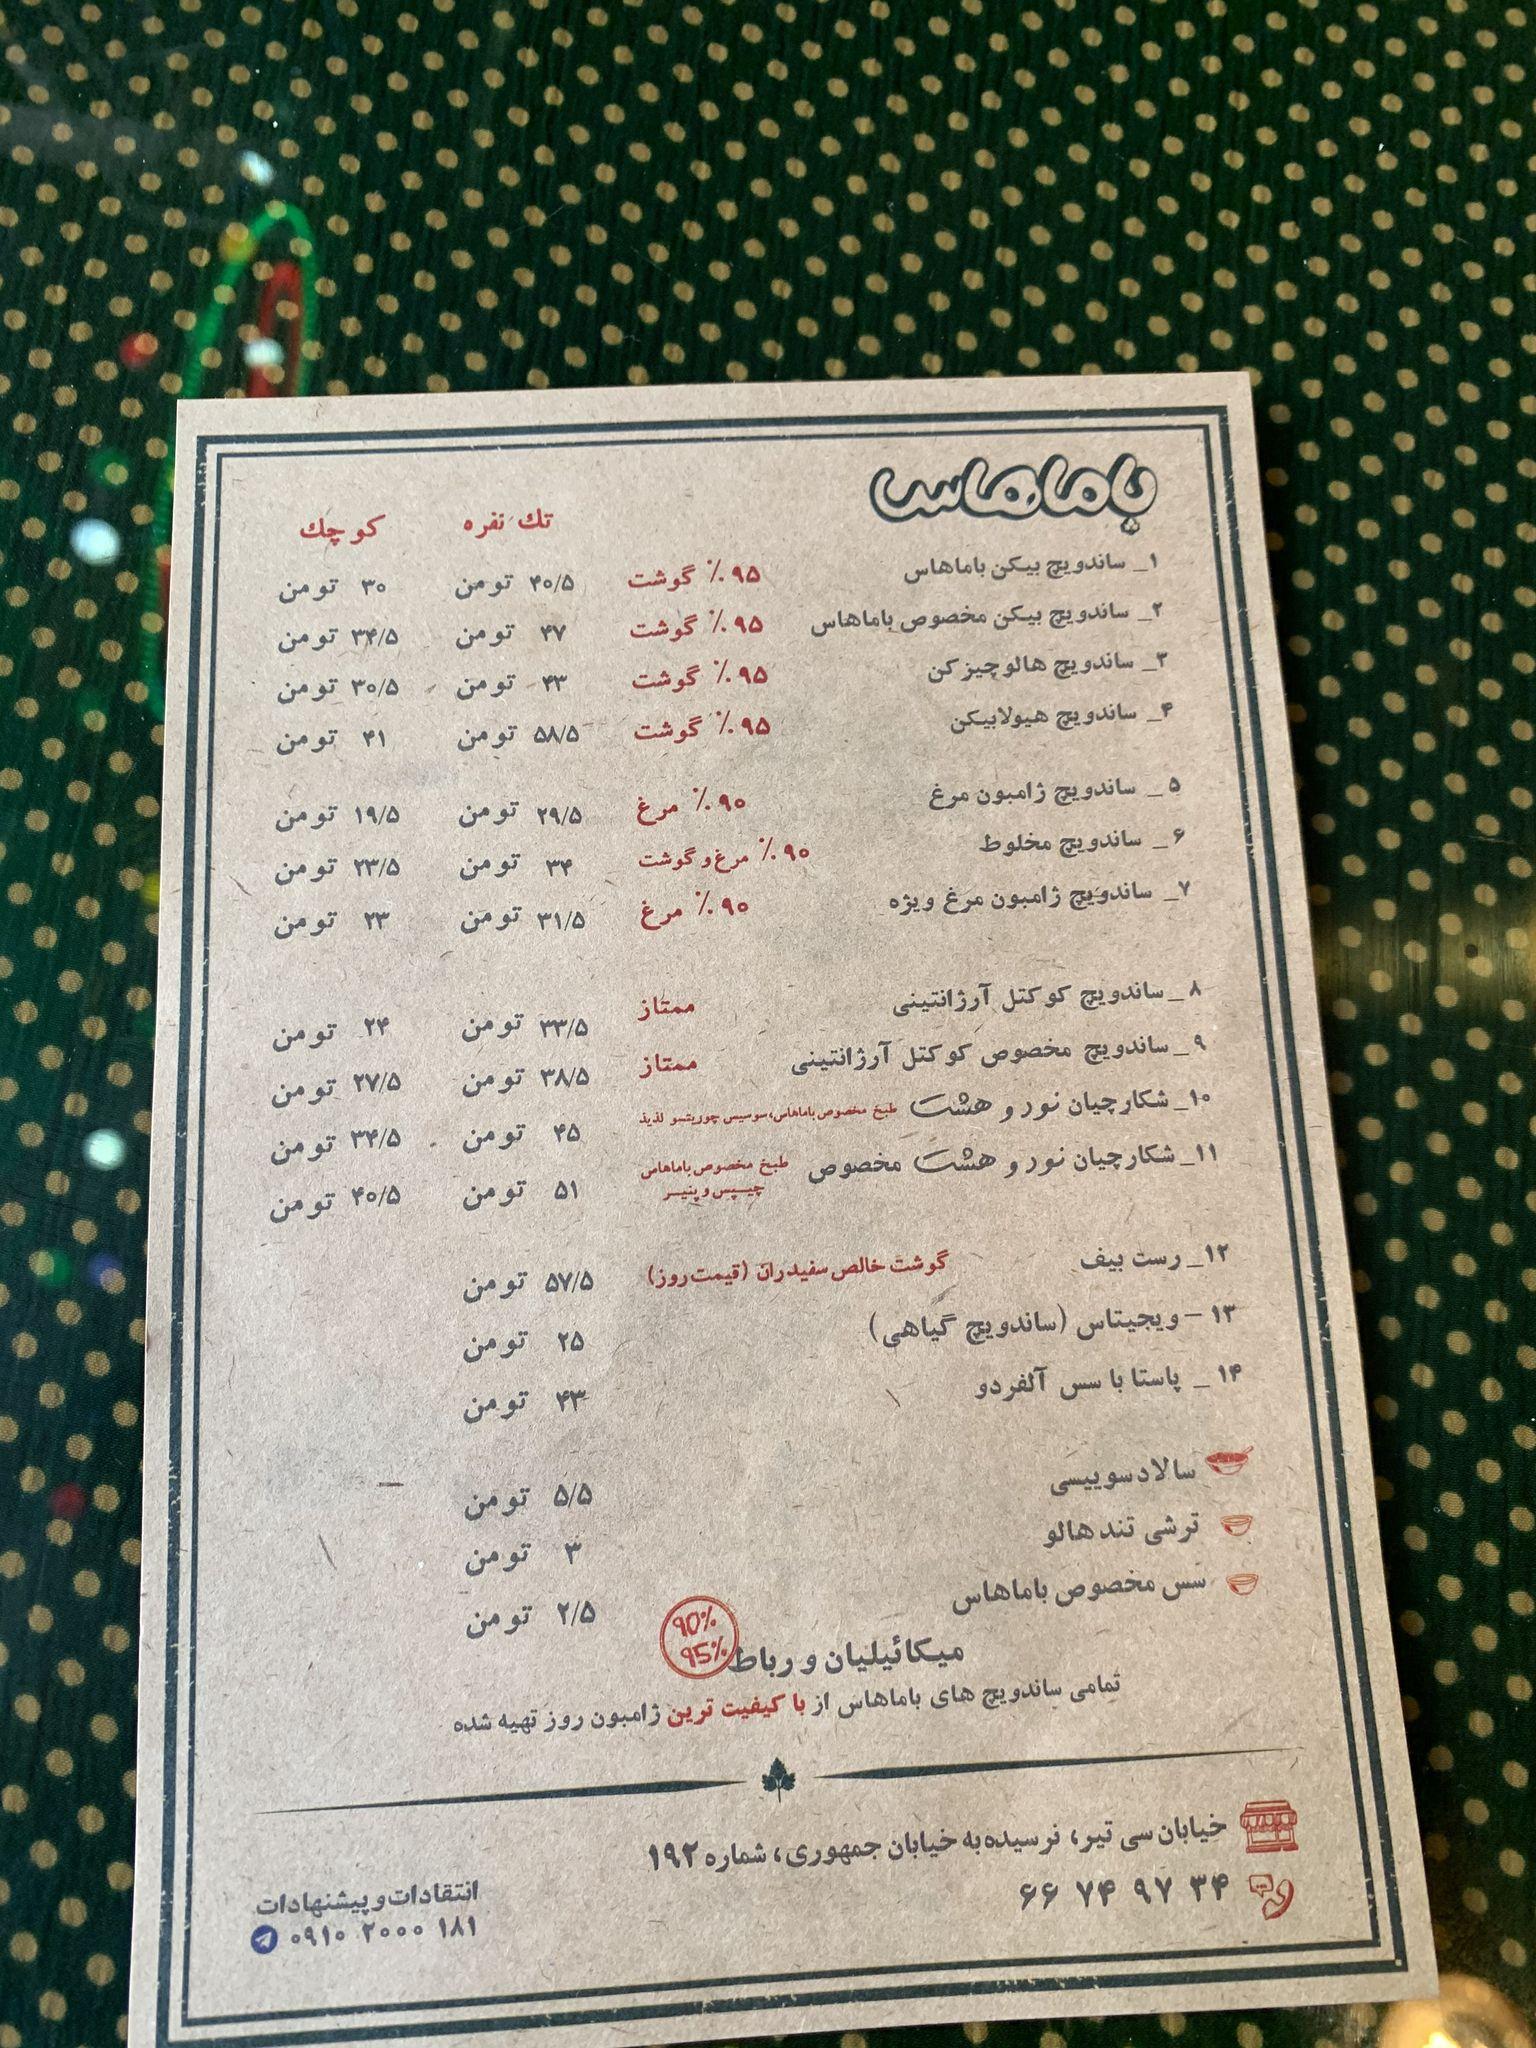 باماهاس
تک نفره کوچک
۱_ ساندویچ بیکن باماهاس ۹۵٪ گوشت ۴۰/۵ تومن ۳۰ تومن
۲_ ساندویچ بیکن مخصوص باماهاس ۹۵٪ گوشت ۴۷ تومن ۳۴/۵ تومن
۳_ ساندویچ هالوچیزکن ۹۵٪ گوشت ۴۳ تومن ۳۰/۵ تومن
۴_ ساندویچ هیولابیکن ۹۵٪ گوشت ۵۸/۵ تومن ۴۱ تومن
۵_ ساندویچ ژامبون مرغ ۹۰٪ مرغ ۲۹/۵ تومن ۱۹/۵ تومن
۶_ ساندویچ مخلوط ۹۰٪ مرغ و گوشت ۳۴ تومن ۲۳/۵ تومن
۷_ ساندویچ ژامبون مرغ ویژه ۹۰٪ مرغ ۳۱/۵ تومن ۲۳ تومن
۸_ ساندویچ کوکتل آرژانتینی ممتاز ۳۳/۵ تومن ۲۴ تومن
۹_ ساندویچ مخصوص کوکتل آرژانتینی ممتاز ۳۸/۵ تومن ۲۷/۵ تومن
۱۰_ شکارچیان نور و هشت طبخ مخصوص باماهاس، سوسیس چوریتسو لذیذ ۴۵ تومن ۳۴/۵ تومن
۱۱_ شکارچیان نور و هشت مخصوص طبخ مخصوص باماهاس ۵۱ تومن ۴۰/۵ تومن
چیپس و پنیر
۱۲_ رست بیف گوشت خالص سفیدران (قیمت روز) ۵۷/۵ تومن
۱۳ - ویجیتاس (ساندویچ گیاهی) ۲۵ تومن
۱۴_ پاستا با سس آلفردو ۴۳ تومن
سالاد سوییسی ۵/۵ تومن
ترشی تند هالو ۳ تومن
سس مخصوص باماهاس ۲/۵ تومن
میکائیلیان و رباط ۹۰٪ ۹۵٪
تمامی ساندویچ های باماهاس از با کیفیت ترین ژامبون روز تهیه شده
خیابان سی تیر، نرسیده به خیابان جمهوری، شماره ۱۹۲
۶۶ ۷۴ ۹۷ ۳۴
انتقادات و پیشنهادات
۰۹۱۰ ۲۰۰۰ ۱۸۱